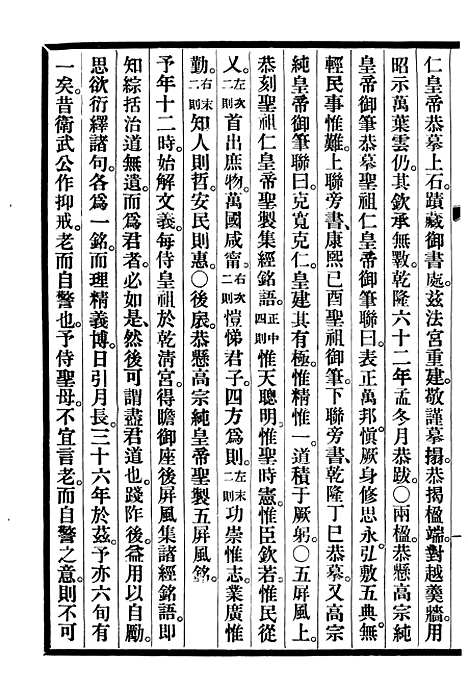 仁皇帝恭摹上石。蹟藏御書處。茲法宮重建。敬謹摹搨。恭揭楹端。對越羹牆。用
昭示萬葉雲仍。其欽承無斁。乾隆六十二年孟冬月恭跋。○兩楹。恭懸高宗純
皇帝御筆恭摹聖祖仁皇帝御筆聯曰。表正萬邦。愼厥身修思永。弘敷五典。無
輕民事惟難。上聯旁書、康熙己酉聖祖御筆。下聯旁書、乾隆丁巳恭摹。又高宗
純皇帝御筆聯曰。克寬克仁。皇建其有極。惟精惟一。道積于厥躬。○五屏風上。
恭刻聖祖仁皇帝聖製集經銘語。正中四則惟天聰明。惟聖時憲。惟臣欽若。惟民從
乂。左次二則首出庶物。萬國咸甯。右次二則愷悌君子。四方爲則。左末二則功崇惟志。業廣惟
勤。右末二則知人則哲。安民則惠。○後扆恭懸高宗純皇帝聖製五屏風銘。
予年十二時。始解文義。每侍皇祖於乾清宮。得瞻御座後屏風集諸經銘語。卽
知綜括治道無遺。而爲君者。必如是。然後可謂盡君道也。踐阼後。益用以自勵。
思欲衍繹諸句。各爲一銘。而理精義博。日引月長。三十六年於茲。予亦六旬有
一矣。昔衞武公作抑戒。老而自警也。予侍聖母。不宜言老。而自警之意。則不可